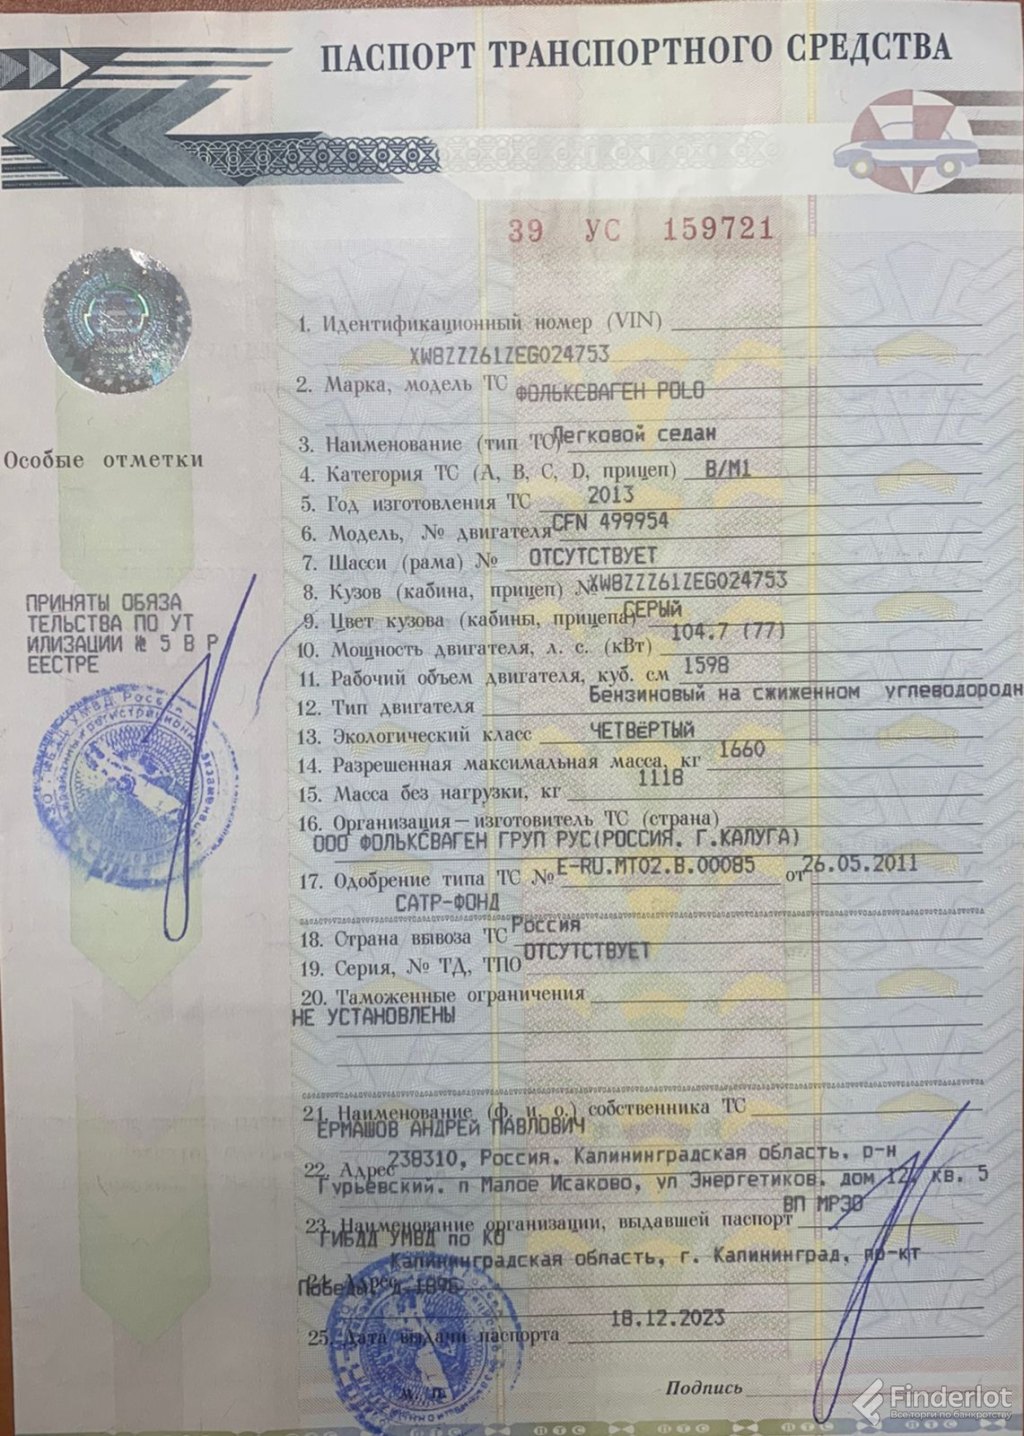 ПАСПОРТ ТРАНСПОРТНОГО СРЕДСТВА
39 УС 159721
1. Идентификационный номер (VIN)
XW8ZZZ61ZEG024753
2. Марка, модель ТС ФОЛЬКСВАГЕН POLO
3. Наименование (тип ТС) Легковой седан
Особые отметки
4. Категория ТС (A, B, C, D, прицеп) B/M1
5. Год изготовления ТС 2013
6. Модель, № двигателя CFN 499954
7. Шасси (рама) № ОТСУТСТВУЕТ
8. Кузов (кабина, прицеп) № XW8ZZZ61ZEG024753
ПРИНЯТЫ ОБЯЗА
ТЕЛЬСТВА ПО УТ
ИЛИЗАЦИИ № 5 В Р
ЕЕСТРЕ
9. Цвет кузова (кабины, прицепа) СЕРЫЙ
10. Мощность двигателя, л. с. (кВт) 104.7 (77)
11. Рабочий объем двигателя, куб. см 1598
12. Тип двигателя Бензиновый на сжиженном углеводородн
13. Экологический класс ЧЕТВЁРТЫЙ
14. Разрешенная максимальная масса, кг 1660
15. Масса без нагрузки, кг 1118
16. Организация – изготовитель ТС (страна)
ООО ФОЛЬКСВАГЕН ГРУП РУС(РОССИЯ. Г.КАЛУГА)
17. Одобрение типа ТС № E-RU.MT02.B.00085 от 26.05.2011
САТР-ФОНД
18. Страна вывоза ТС Россия
19. Серия, № ТД, ТПО ОТСУТСТВУЕТ
20. Таможенные ограничения
НЕ УСТАНОВЛЕНЫ
21. Наименование (ф. и. о.) собственника ТС
ЕРМАШОВ АНДРЕЙ ПАВЛОВИЧ
22. Адрес 238310, Россия. Калининградская область. р-н
Гурьевский. п Малое Исаково, ул Энергетиков. дом 12, кв. 5
23. Наименование организации, выдавшей паспорт ВП МРЭО
ГИБДД УМВД по КО
Калининградская область, г. Калининград, пр-кт
24. Адрес Победы, д 189Б
25. Дата выдачи паспорта 18.12.2023
М. П.
Подпись
Finderlot
Все торги по банкротству